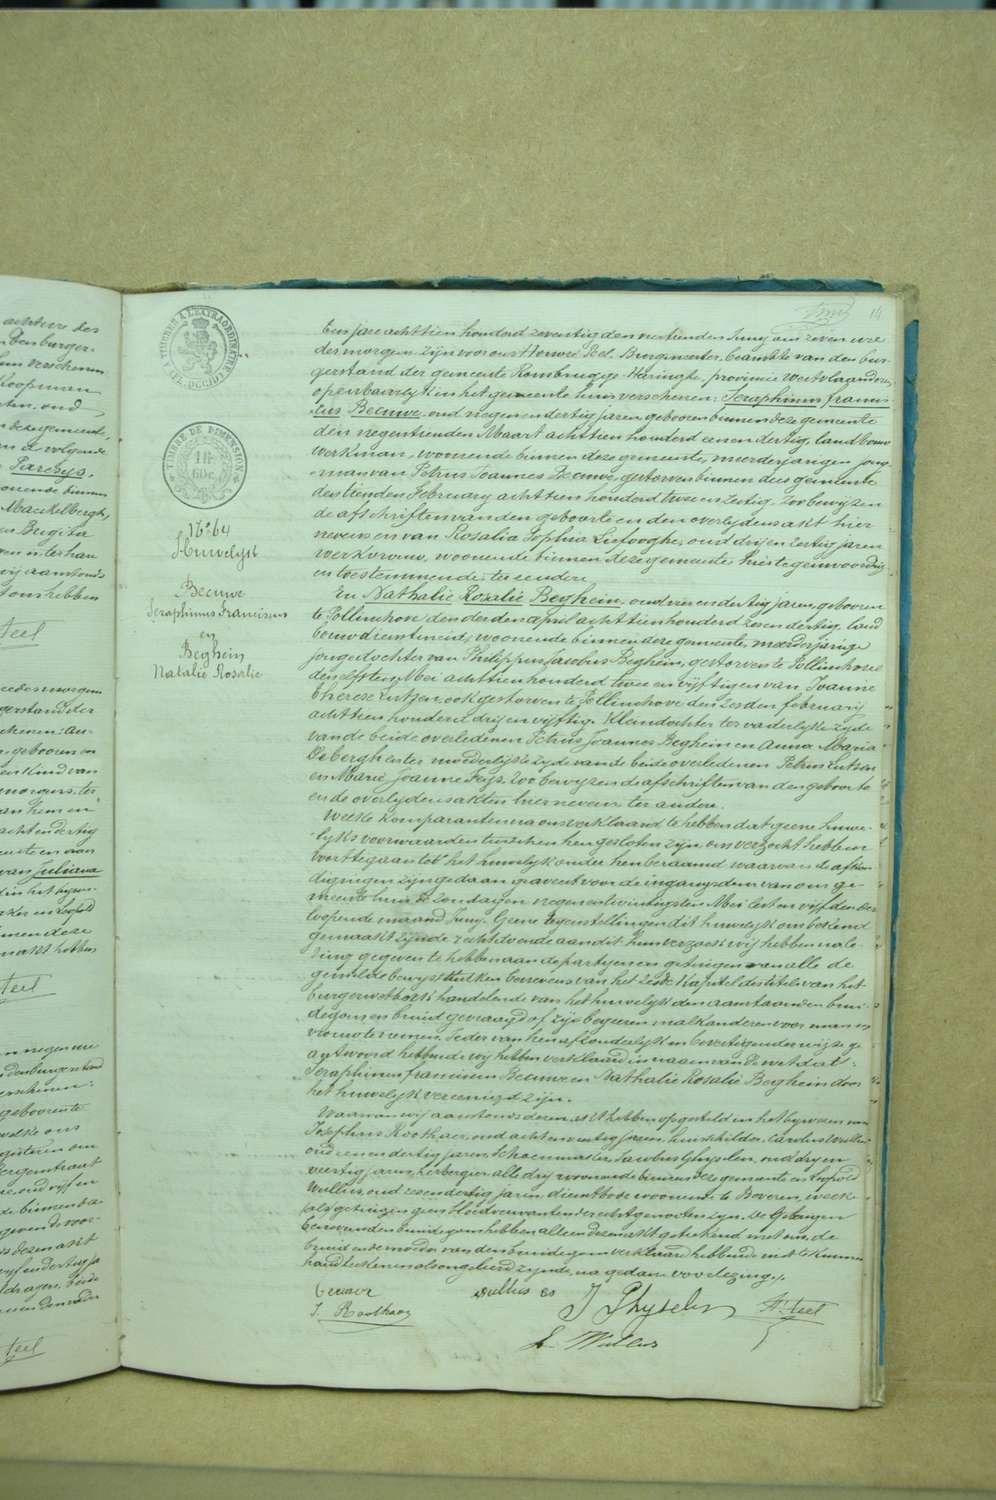 TIMBRE A L'EXTRAORDINAIRE
FL. OCCID.
TIMBRE DE DIMENSION
1 fr
60c
N° 64
Huwelijk
Beeuwe
Seraphinus Franciscus
en
Beghein
Natalie Roselie
14
Een jare achttien honderd zeventig den veertienden Juny om zeven ure
des morgens zijn voor ons Honoré Beel, Burgmeester, beambte van den bur-
gerstand der gemeente Rousbrugge-Haringhe, provincie Westvlaanderen,
openbaarlyk in het gemeente huis verschenen: Seraphinus francis-
cus Beeuwe, oud negenendertig jaren geboren binnen deze gemeente
den negentienden Maart achttien honderd eenendertig, landbouw
werkman, woonende binnen deze gemeente, meerderjarigen jong-
man van Petrus Joannes Beeuwe, gestorven binnen deze gemeente
den tienden February achttien honderd twee en zestig, zoo bewijzen
de afschriften van den geboorte en den overlydens akt hier
nevens en van Rosalia Sophia Liefooghe, oud drij en zestig jaren
werkvrouw, woonende binnen deze gemeente, hier tegenwoordig
en toestemmende, ter eendere
En Nathalie Rosalie Beghein, oud vier en dertig jaren, geboren
te Pollinchove den derden april achttien honderd zesendertig, land
bouwdienstmeid, woonende binnen deze gemeente, meerderjarige
jongedochter van Philippus Jacobus Beghein, gestorven te Pollinchove
den elfsten Mei achttien honderd twee en vyftig en van Joanne
Therese Lutzen, ook gestorven te Pollinchove den zesden february
achttien honderd drij en vyftig. Kleindochter ter vaderlyke zyde
van de beide overledenen Petrus Joannes Beghein en Anna Maria
Debergh en ter moederlyke zyde van de beide overledenen Petrus Lutzen
en Marie Joanne Feys. Zoo bewyzen de afschriften van den geboorte
en de overlydens akten hiernevens, ter andere.
Welke komparanten na ons verklaard te hebben dat geene huwe-
lyks voorwaarden tusschen hen gesloten zyn, ons verzocht hebben
voort te gaan tot het huwelyk onder hen beraamd waarvan de afkon-
digingen zyn gedaan geweest voor de ingangsdeur van ons ge-
meente huis de zondagen negenentwintigsten Mei lest en vyfden der
loopende maand Juny. Geene tegenstellingen dit huwelyk ons bekend
gemaakt zynde, recht doende aan dit hun verzoek wij hebben na le-
zing gegeven te hebben aan de partyen en getuigen van alle de
gemelde bewysstukken benevens van het zesde Kapitel des titels van het
burgerwetboek handelende van het huwelyk den aanstaanden brui-
degom en bruid gevraagd of zy begeeren malkanderen voor man en
vrouw te nemen. Ieder van hen afzonderlyk en bevestigender wijze ge-
antwoord hebbende wij hebben verklaard in naam van de wet dat
Seraphinus franciscus Beeuwe en Nathalie Rosalie Beghein door
het huwelyk vereenigd zijn.
Waarvan wij aanstonds dezen akt hebben opgesteld in het bywezen van
Josephus Roothaer, oud achtenveertig jaren, huisschilder, Carolus Wullus
oud eenendertig jaren, Schoenmaker, Jacobus Ghyselen, oud dry en
veertig jaren, herbergier alle drij woonende binnen deze gemeente en Leopold
Wullus, oud zesendertig jaren dienstbode woonende te Beveren, welke
als getuigen geen bloedverwanten der echtgenooten zyn. De Getuigen
benevens den bruidegom hebben alleen dezen akt geteekend met ons, de
bruid en de moeder van den bruidegom verklaard hebbende niet te kunnen
handteekenen als ongeleerd zynde, na gedane voorlezing.
beeuwe
wullus cs
J Ghyselen
H. Beel
J. Roothaer
L. Wullus